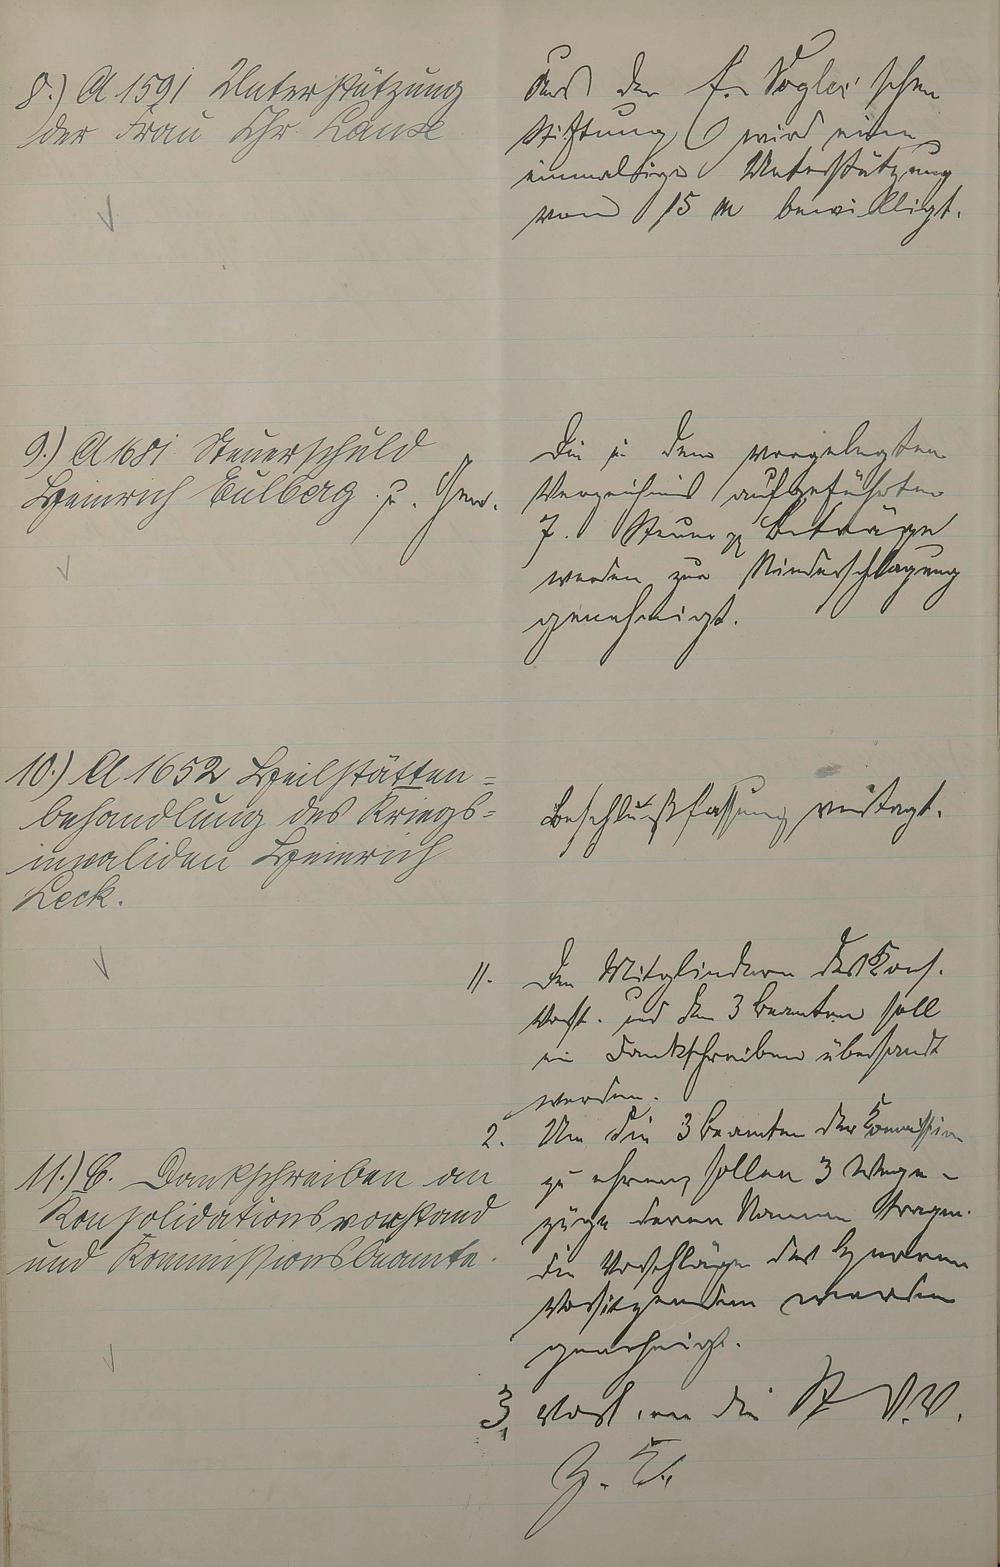 8.) A 1591 Unterstützung
der Frau Chr. Lanze
Aus der f. Vogler'schen
Stiftung wird eine
einmalige Unterstützung
von 15 M bewilligt.
9.) A 1681 Steuerschuld
Heinrich Eulberg u. Gen.
Die in dem vorgelegten
Verzeichnis aufgeführten
7. Steuer Beträge
werden zur Niederschlagung
genehmigt.
10.) A 1652 Heilstätten=
behandlung des Kriegs=
invaliden Heinrich
Leck.
Beschlußfassung vertagt.
11.) C. Dankschreiben an
Konsolidationsvorstand
und Kommissionsbeamte.
1. Den Mitgliedern des Kons.
Vorst. und den 3 Beamten soll
ein Dankschreiben übersandt
werden.
2. Um die 3 Beamten der Kommission
zu ehren, sollen 3 Wege-
züge deren Namen tragen.
die Vorschläge des Herrn
Vorsitzenden werden
genehmigt.
3. Vorl. an die St. V.V.
z. K.